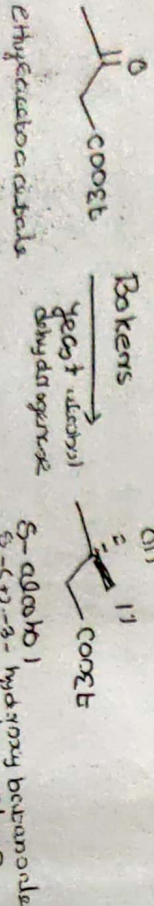 O
COOEt
ethylacetoacetate
Bakers
yeast alcohol
dehydrogenase
OH
H
COOEt
S-alcohol
S-(+)-3-hydroxy butanoate